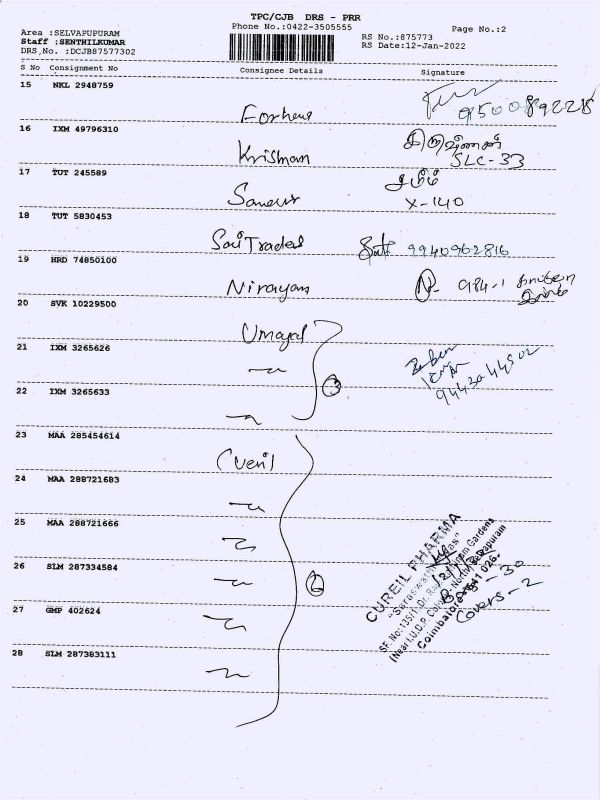 TPC/CJB DRS - PRR
Phone No.:0422-3505555
Page No.:2
Area :SELVAPUPURAM
Staff :SENTHILKUMAR
DRS,No. :DCJB87577302
RS No.:875773
RS Date:12-Jan-2022
S No Consignment No Consignee Details Signature
15 NKL 2948759
9500892228
16 IXM 49796310
Krishnan
SLC-33
17 TUT 245589
X-140
18 TUT 5830453
Sai Trades 9940962816
19 HRD 74850100
Nirayan
20 SVK 10229500
Umayal
21 IXM 3265626
3
22 IXM 3265633
9443044502
23 MAA 285454614
24 MAA 288721683
25 MAA 288721666
26 SLM 287334584
6
27 GMP 402624
28 SLM 287383111
CUREIL PHARMA
"Saraswathi
SF.No:135/1, Dr. Gardens
(Near I.U.D.P. Colony North) Selvapuram
Coimbatore 641 026.
Covers-2